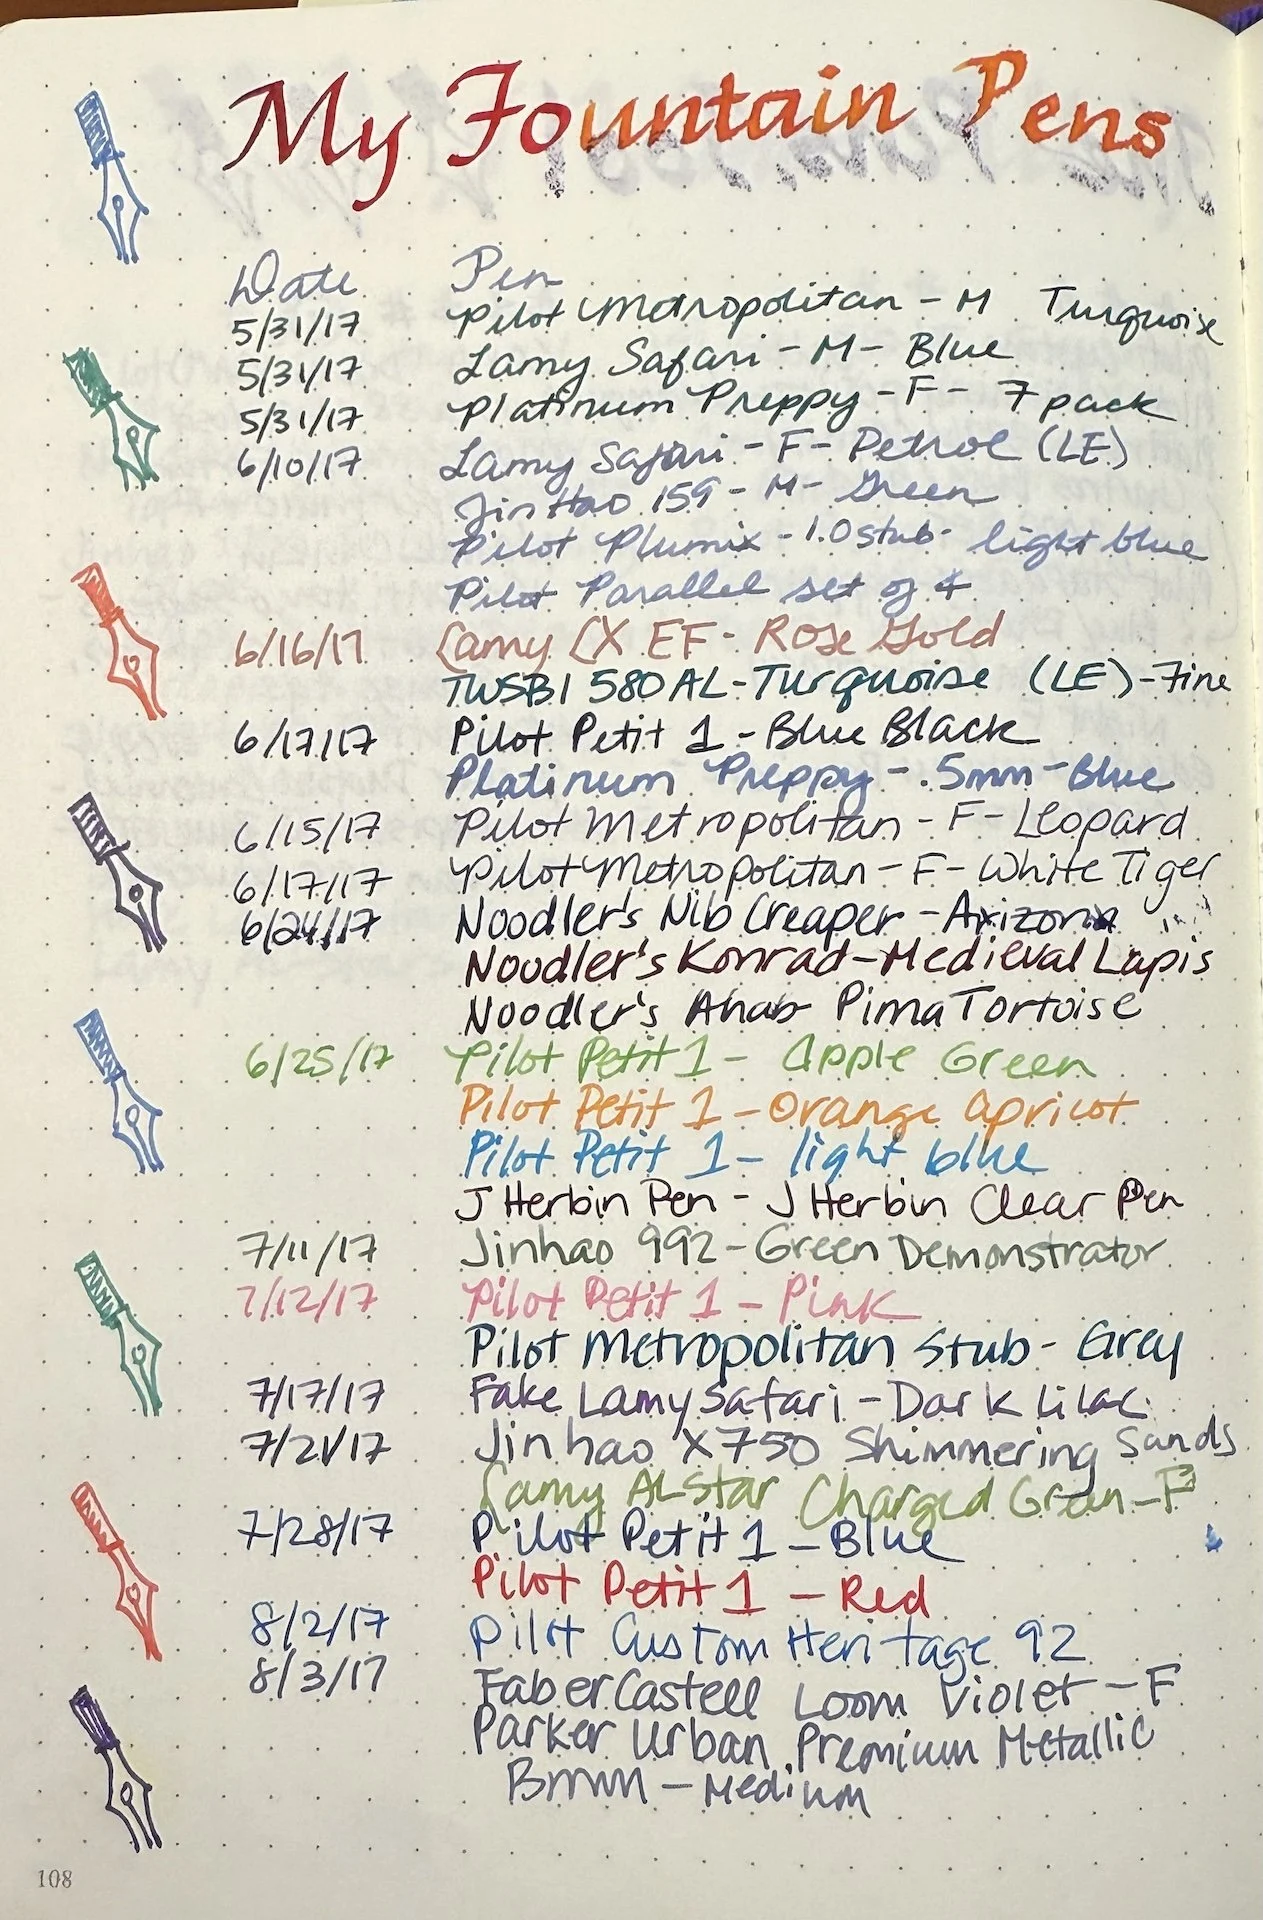 My Fountain Pens
Date Pen
5/31/17 Pilot Metropolitan - M Turquoise
5/31/17 Lamy Safari - M - Blue
5/31/17 Platinum Preppy - F - 7 pack
6/10/17 Lamy Safari - F - Petrol (LE)
JinHao 159 - M - Green
Pilot Plumix - 1.0 stub - light blue
Pilot Parallel set of 4
6/16/17 Lamy LX EF - Rose Gold
TWSBI 580 AL - Turquoise (LE) - Fine
6/17/17 Pilot Petit 1 - Blue Black
Platinum Preppy - .5mm - Blue
6/15/17 Pilot Metropolitan - F - Leopard
6/17/17 Pilot Metropolitan - F - White Tiger
6/24/17 Noodler's Nib Creaper - Arizona
Noodler's Konrad - Medieval Lapis
Noodler's Ahab Pima Tortoise
6/25/17 Pilot Petit 1 - Apple Green
Pilot Petit 1 - Orange Apricot
Pilot Petit 1 - light blue
J Herbin Pen - J Herbin Clear Pen
7/11/17 Jinhao 992 - Green Demonstrator
7/12/17 Pilot Petit 1 - Pink
Pilot Metropolitan Stub - Grey
7/17/17 Fake Lamy Safari - Dark Lilac
7/21/17 Jinhao X750 Shimmering Sands
Lamy ALStar Charged Green - F
7/28/17 Pilot Petit 1 - Blue
Pilot Petit 1 - Red
8/2/17 Pilot Custom Heritage 92
8/3/17 Faber Castell Loom Violet - F
Parker Urban Premium Metallic
Brown - Medium
108